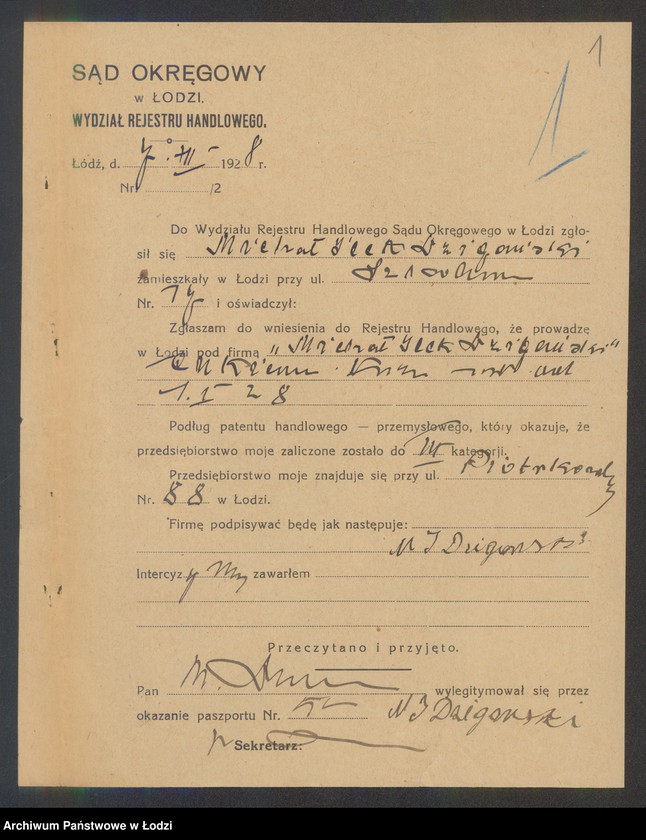 1
SĄD OKRĘGOWY
w ŁODZI.
WYDZIAŁ REJESTRU HANDLOWEGO.
1
Łódź, d. 7. XII 1928 r.
Nr. /2
Do Wydziału Rejestru Handlowego Sądu Okręgowego w Łodzi zgło-
sił się Michał Icek Dzigowski
zamieszkały w Łodzi przy ul.
Nr. 17 i oświadczył:
Zgłaszam do wniesienia do Rejestru Handlowego, że prowadzę
w Łodzi pod firmą „Michał Icek Dzigowski"
od
1. I 28
Podług patentu handlowego — przemysłowego, który okazuje, że
przedsiębiorstwo moje zaliczone zostało do III kategorji.
Przedsiębiorstwo moje znajduje się przy ul. Piotrkowskiej
Nr. 88 w Łodzi.
Firmę podpisywać będę jak następuje:
M I Dzigowski
Intercyzy zawarłem
Przeczytano i przyjęto.
Pan wylegitymował się przez
okazanie paszportu Nr. M I Dzigowski
Sekretarz:
Archiwum Państwowe w Łodzi